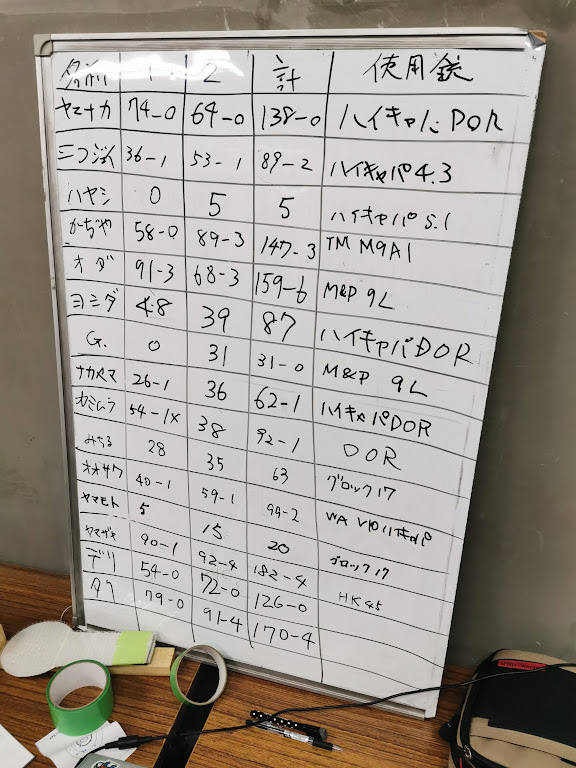 名前 1 2 計 使用銃
ヤマナカ 74-0 64-0 138-0 ハイキャパ DOR
36-1 53-1 89-2 ハイキャパ4.3
ハヤシ 0 5 5 ハイキャパ 5.1
かぢや 58-0 89-3 147-3 TM M9A1
オダ 91-3 68-3 159-6 M&P 9L
ヨシダ 48 39 87 ハイキャパDOR
G. 0 31 31-0 M&P 9L
ナカヤマ 26-1 36 62-1 ハイキャパDOR
カミムラ 54-1x 38 92-1 DOR
みちる 28 35 63 グロック17
オオサワ 40-1 59-1 99-2 WA V10
ヤマモト 5 15 20 グロック17
ヤマザキ 90-1 92-4 182-4 HK45
デリ 54-0 72-0 126-0
タク 79-0 91-4 170-4